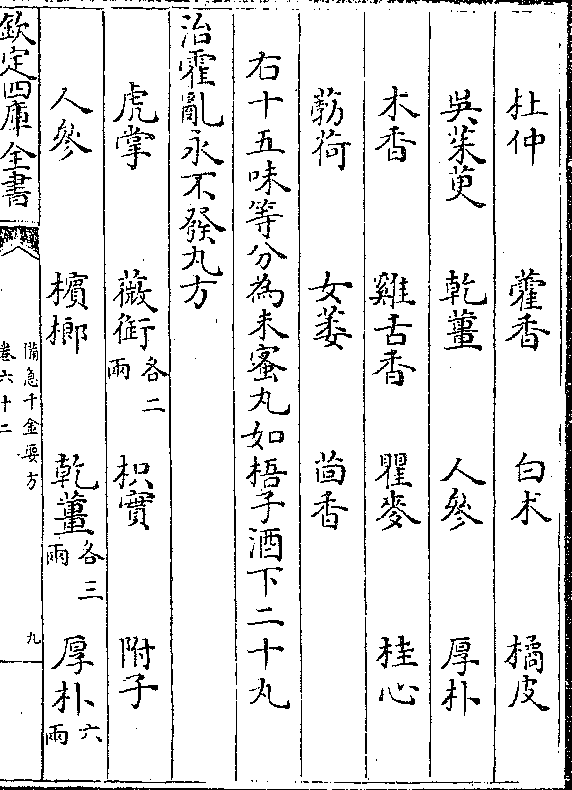 杜仲 藿香 白朮 橘皮
吳茱萸 乾薑 人參 厚朴
木香 雞舌香 瞿麥 桂心
葯荷 女萎 茴香
右十五味等分為末蜜丸如梧子酒下二十丸
治霍亂永不發丸方
虎掌 薇銜各二兩 枳實 附子
人參 檳榔 乾薑各三兩 厚朴六兩
欽定四庫全書
備急千金要方
卷六十二
九